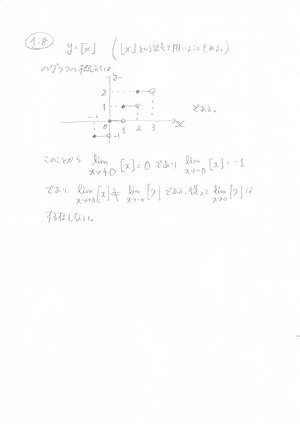 1.8
y=[x] (⌊x⌋という記号を用いることもある。)
のグラフの概形は
y
2
1
0 1 2 3 x
-1
である。
このことから lim x→+0 [x]=0 であり lim x→-0 [x]=-1
であり、lim x→+0 [x] ≠ lim x→-0 [x] である。従って lim x→0 [x] は
存在しない。